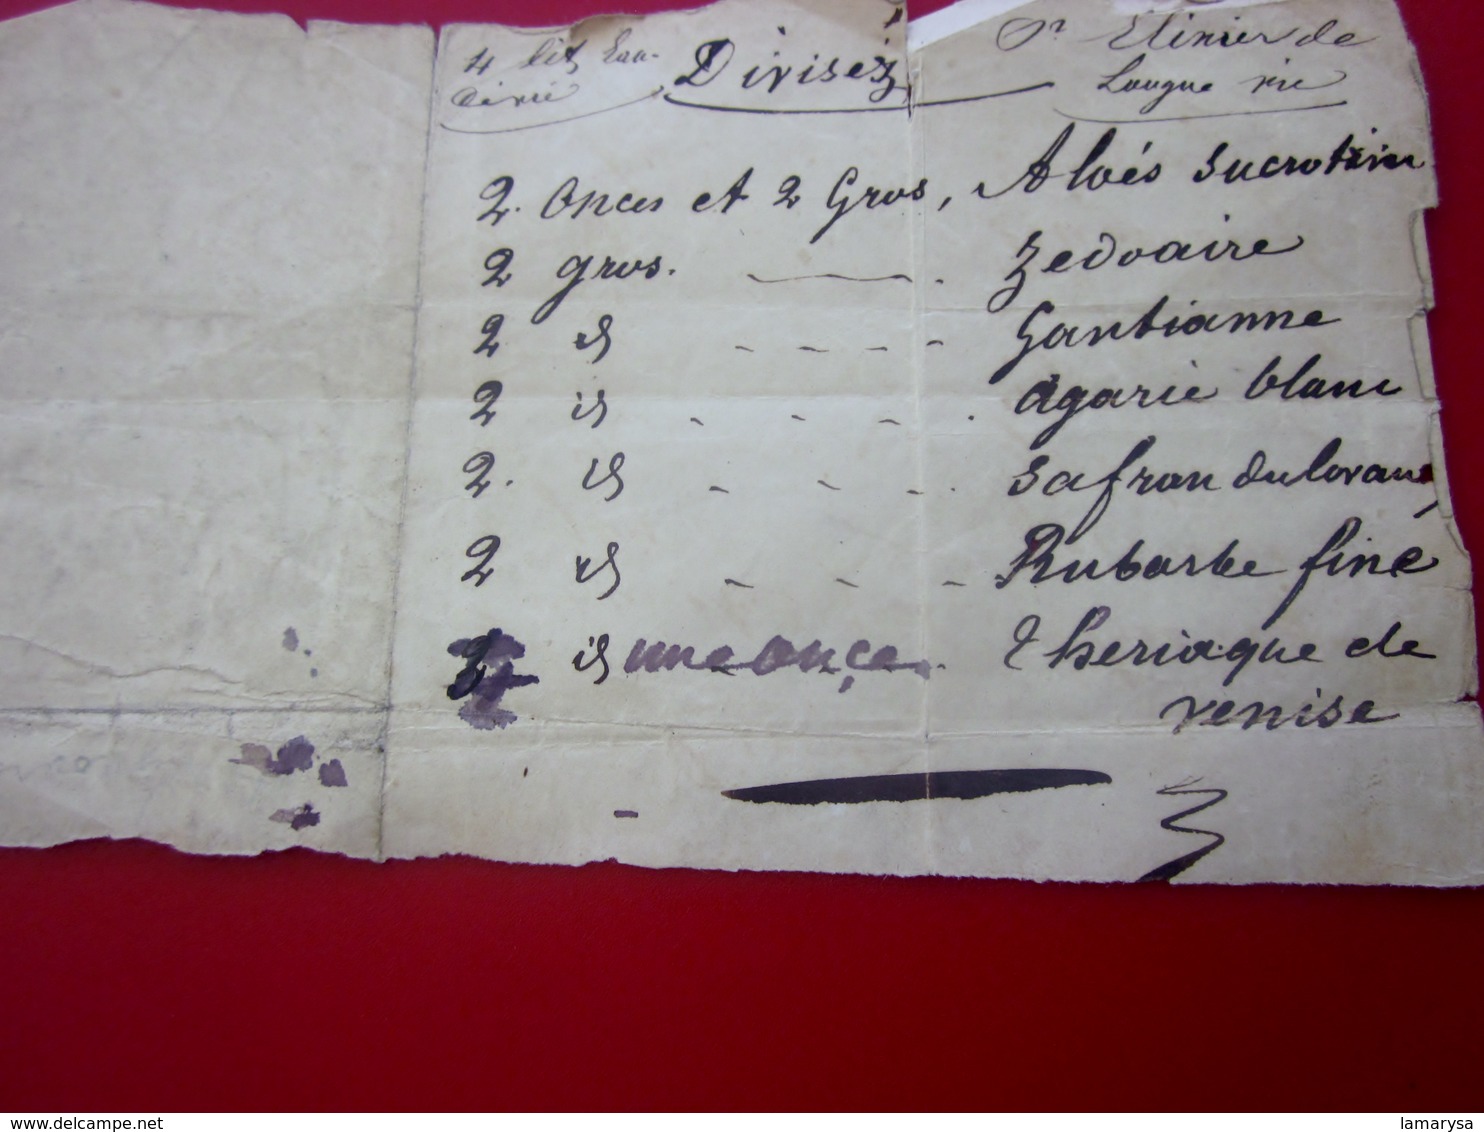 4 lit Eau- Divisez pr Elixier de
de vie Longue vie
2. Onces et 2 Gros, Aloés sucrotrin
2 gros. Zedoaire
2 id Gantianne
2 id agaric blanc
2. id Safran du
2 id Rubarbe fine
2 id une onçe Theriaque de
venise
www.delcampe.net
lamarysa